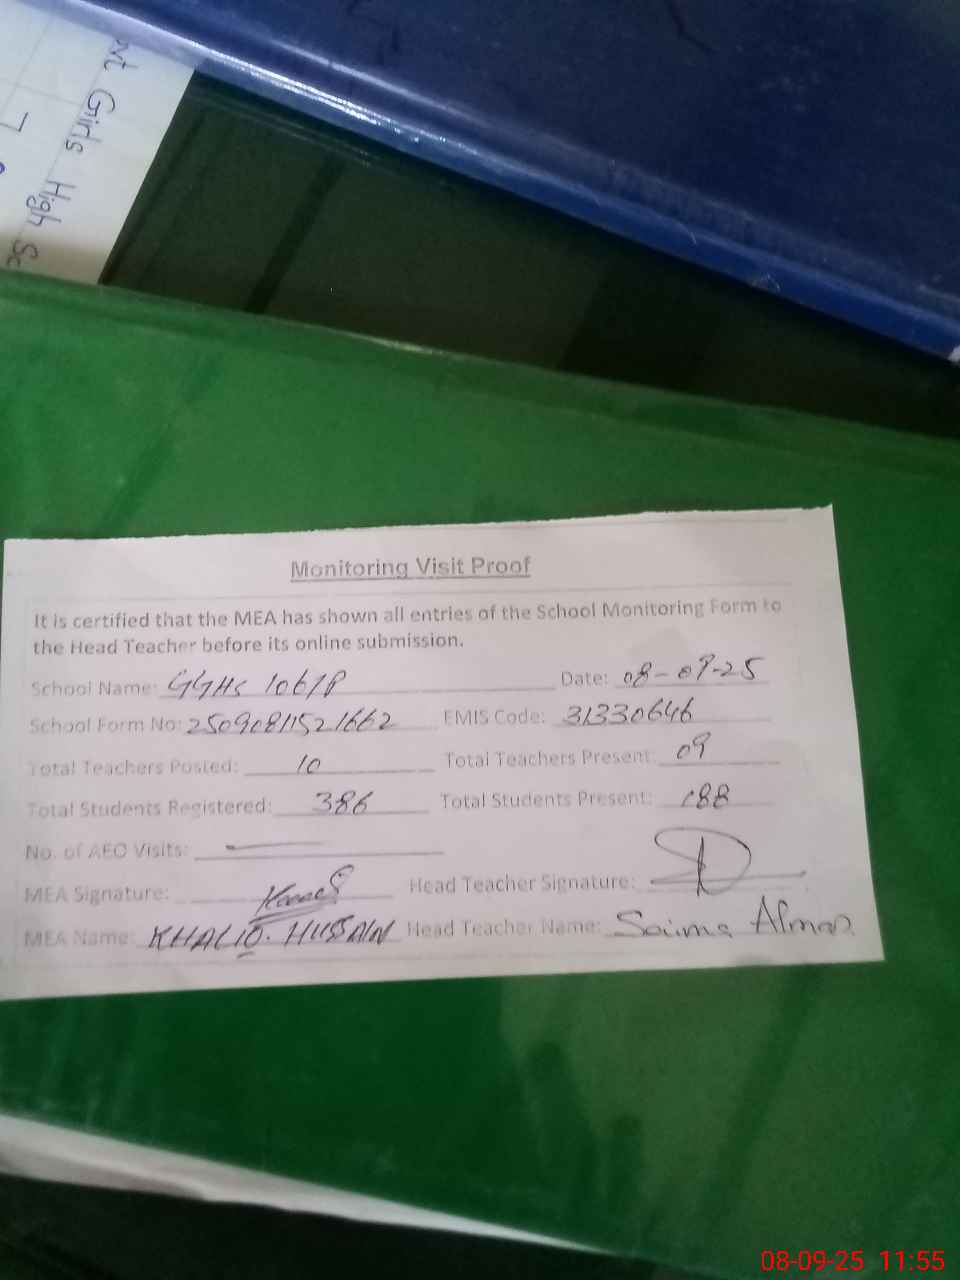 vt Girls High Sc
Monitoring Visit Proof
It is certified that the MEA has shown all entries of the School Monitoring Form to
the Head Teacher before its online submission.
School Name: GGHS 106/P Date: 08-09-25
School Form No: 2509081152 1662 EMIS Code: 31330646
Total Teachers Posted: 10 Total Teachers Present: 09
Total Students Registered: 386 Total Students Present: 188
No. of AEO Visits: —
MEA Signature: Head Teacher Signature:
MEA Name: KHALIQ. HUSSAIN Head Teacher Name: Saima
08-09-25 11:55